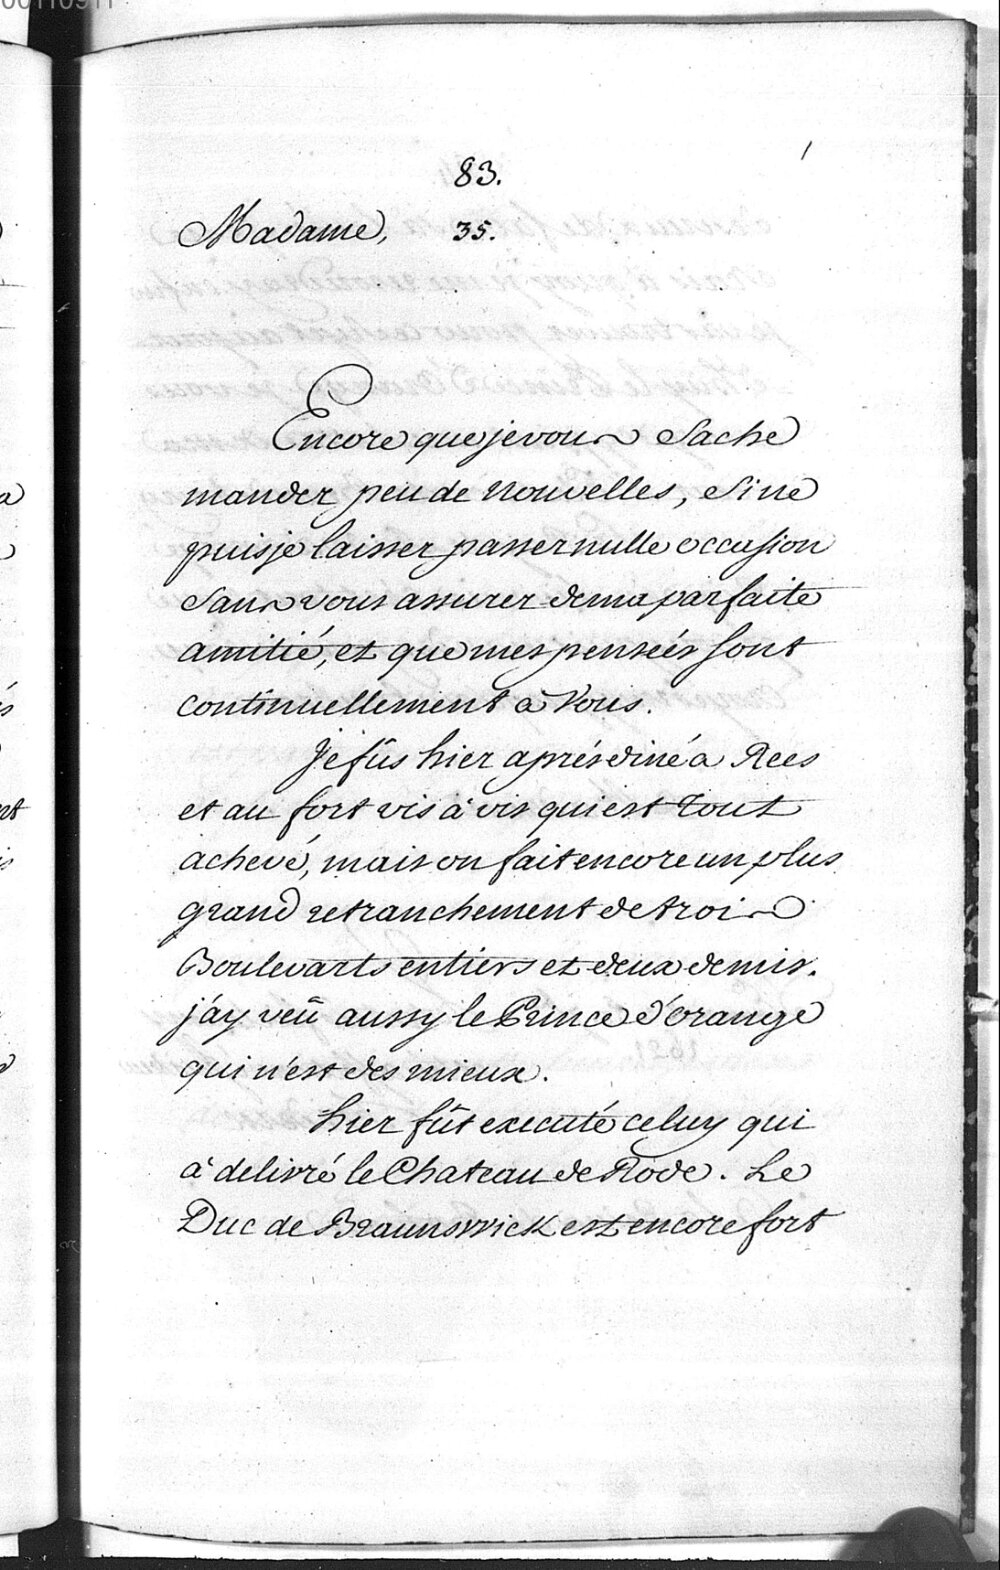 00110911
83.
Madame, 35.
Encore que je vous Sache
mander peu de Nouvelles, Si ne
puis je laisser passer nulle occasion
Sans vous assurer de ma parfaite
amitié, et que mes pensées Sont
continuellement à Vous.
Je fûs hier aprés diné a Rees
et au fort vis à vis qui est Tout
achevé, mais on fait encore un plus
grand retranchement de trois
Boulevarts entiers et deux demis.
j'ay veû aussy le Prince d'Orange
qui n'est des mieux.
Hier fût executé celuy qui
à delivré le Chateau de Rode. Le
Duc de Braunswick est encore fort